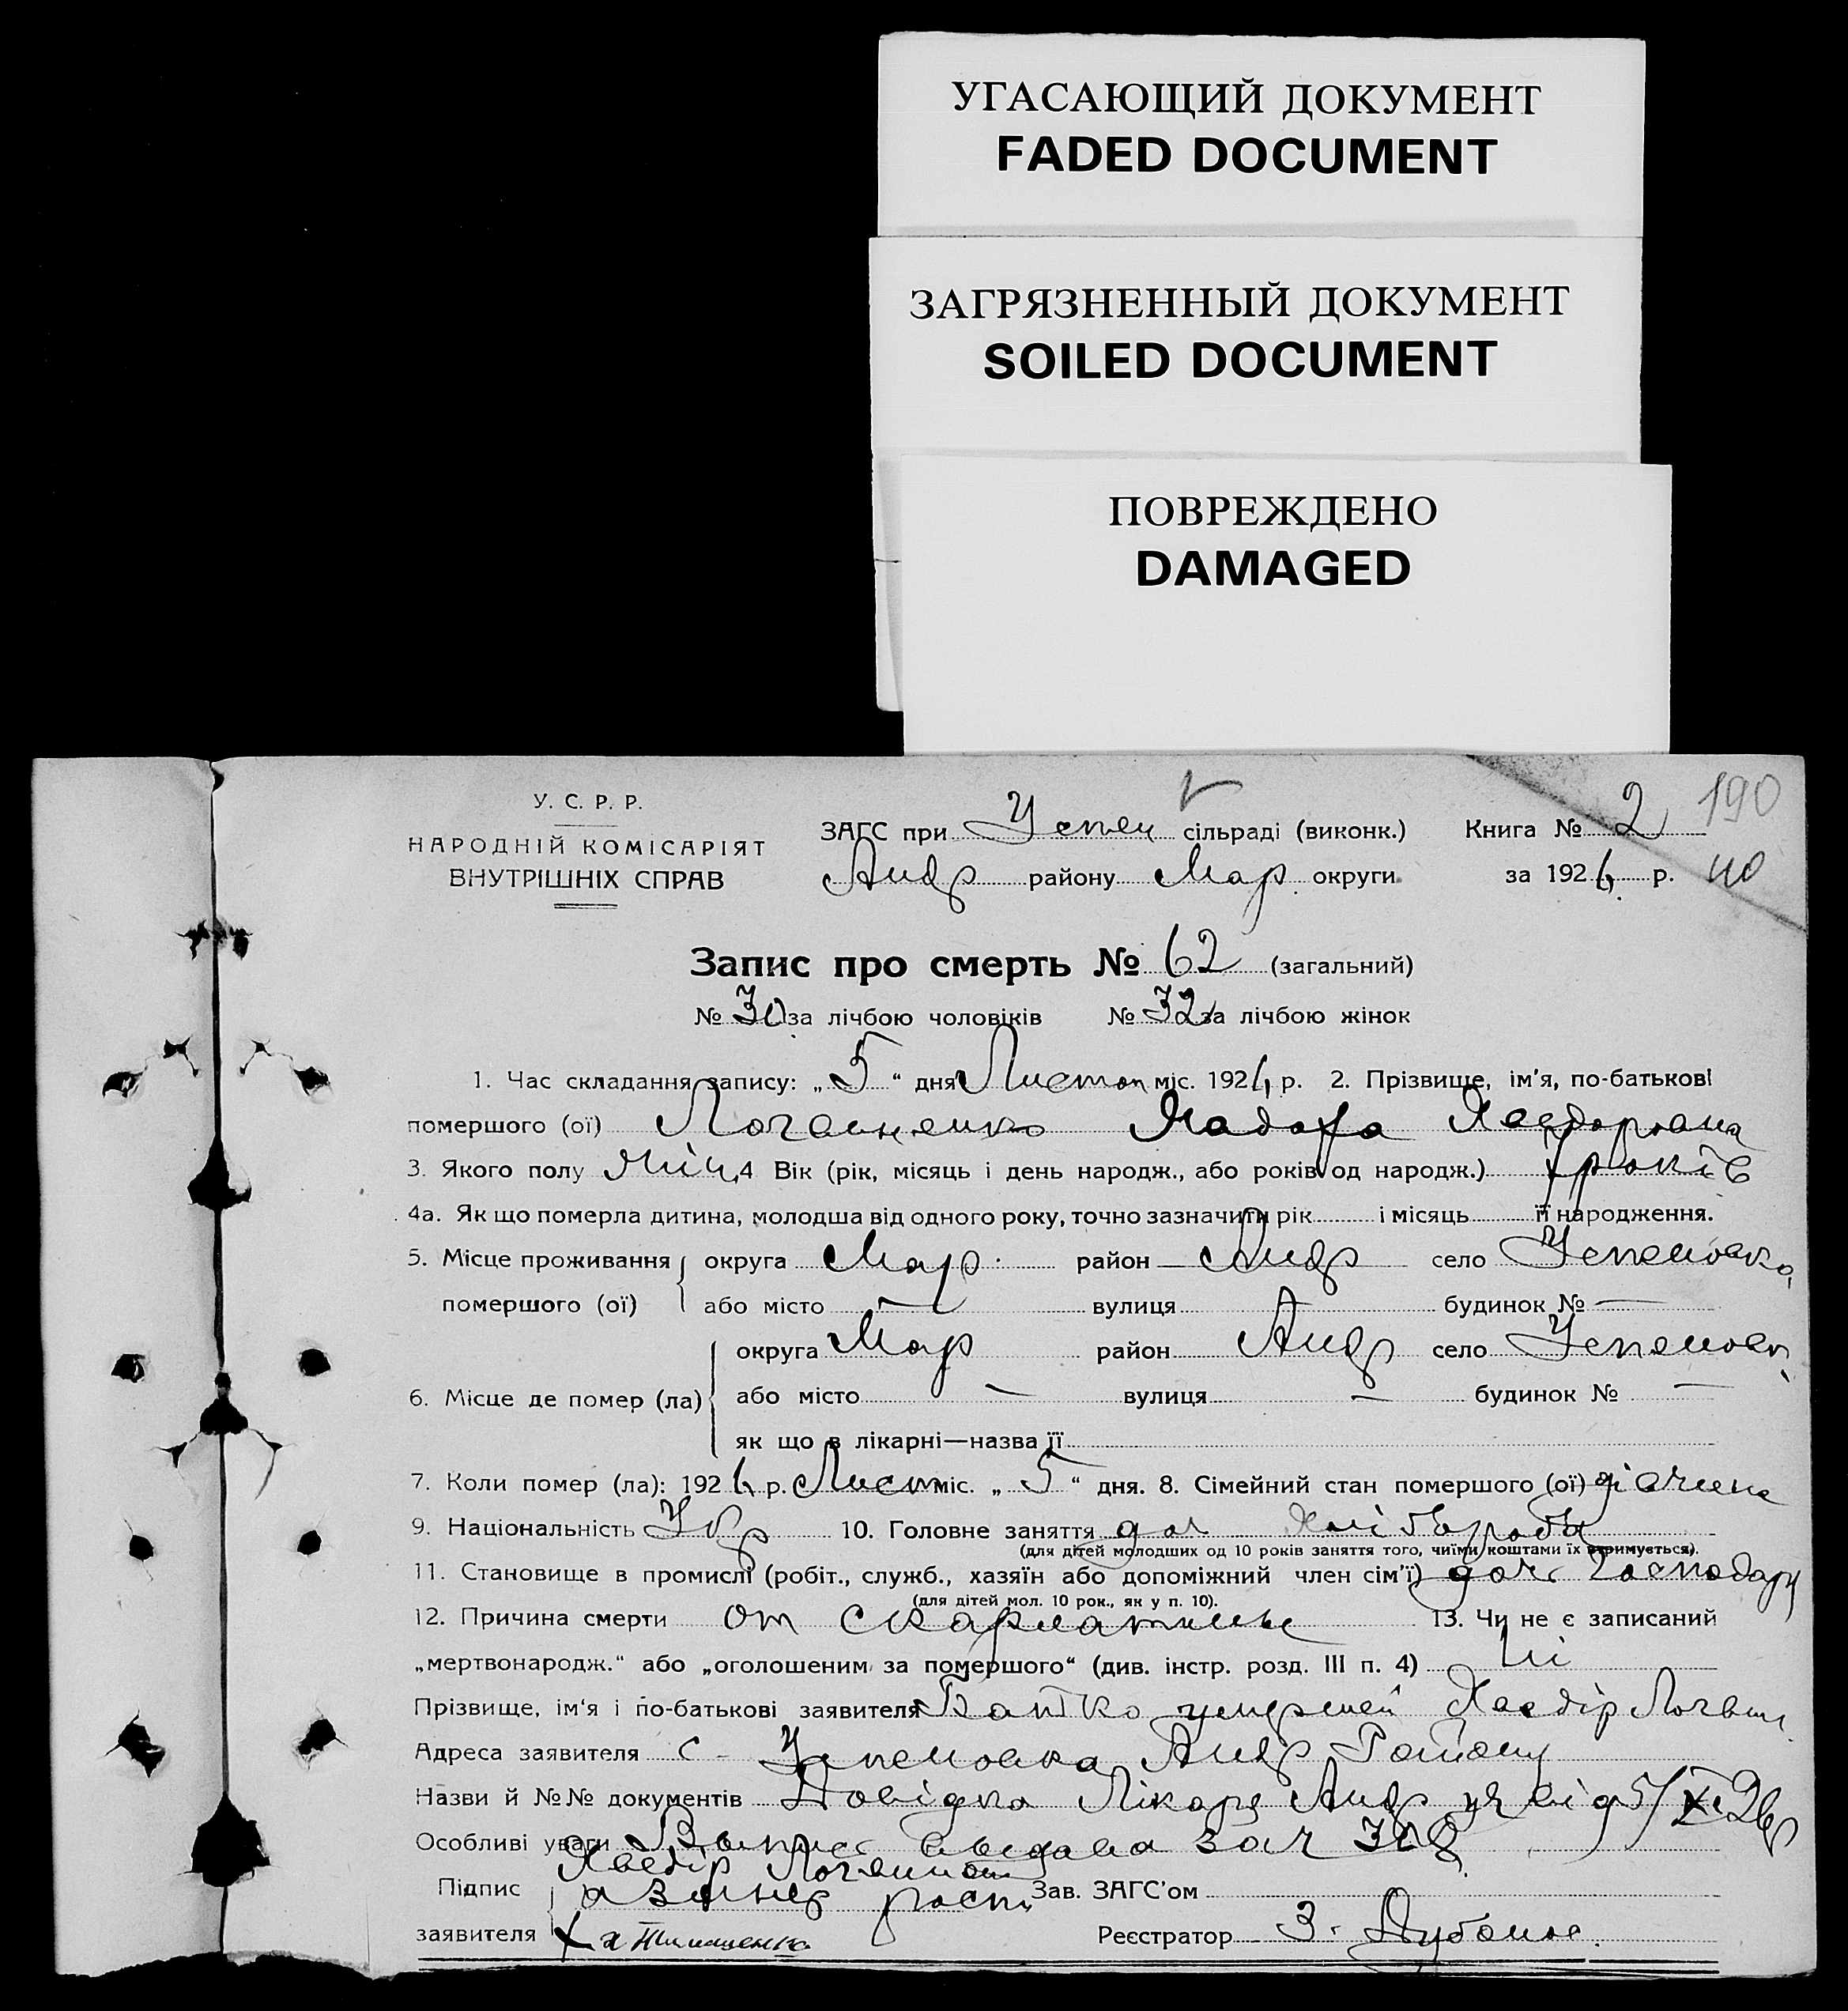 УГАСАЮЩИЙ ДОКУМЕНТ
FADED DOCUMENT
ЗАГРЯЗНЕННЫЙ ДОКУМЕНТ
SOILED DOCUMENT
ПОВРЕЖДЕНО
DAMAGED
190
У. С. Р. Р.
НАРОДНІЙ КОМІСАРІЯТ
ВНУТРІШНІХ СПРАВ
ЗАГС при Успен сільраді (виконк.) Книга № 2
Андр району Мар. округи за 1926 р. 40
Запис про смерть № 62 (загальний)
№ 30 за лічбою чоловіків № 32 за лічбою жінок
1. Час складання запису: „5“ дня Листоп міс. 1926 р. 2. Прізвище, ім'я, по-батькові
помершого (ої) Хведоровна
3. Якого полу жін 4 Вік (рік, місяць і день народж., або років од народж.) років
4а. Як що померла дитина, молодша від одного року, точно зазначити рік і місяць її народження.
5. Місце проживання округа Мар. район Андр село Успеновка
помершого (ої) або місто — вулиця — будинок № —
округа Мар район Андр село Успеновк
6. Місце де помер (ла) або місто — вулиця — будинок № —
як що в лікарні—назва її
7. Коли помер (ла): 1926 р. Лист міс. „5“ дня. 8. Сімейний стан помершого (ої) дівчина
9. Національність Укр 10. Головне заняття доч Хліборобы
(для дітей молодших од 10 років заняття того, чиїми коштами їх втримується).
11. Становище в промислі (робіт., служб., хазяїн або допоміжний член сім'ї) доч. Господару
(для дітей мол. 10 рок., як у п. 10).
12. Причина смерти от скарлатины 13. Чи не є записаний
„мертвонародж.“ або „оголошеним за помершого“ (див. інстр. розд. III п. 4) Ні
Прізвище, ім'я і по-батькові заявителя Батко умершей Хведір Логвин
Адреса заявителя с. Успеновка Андр Району
Назви й №№ документів Довідка Лікаря Андр від 5/XI 26 р
Особливі уваги Выпис выдана за ч 308
Хведір
Підпис Зав. ЗАГС'ом
заявителя х Тимошенко Реєстратор З.